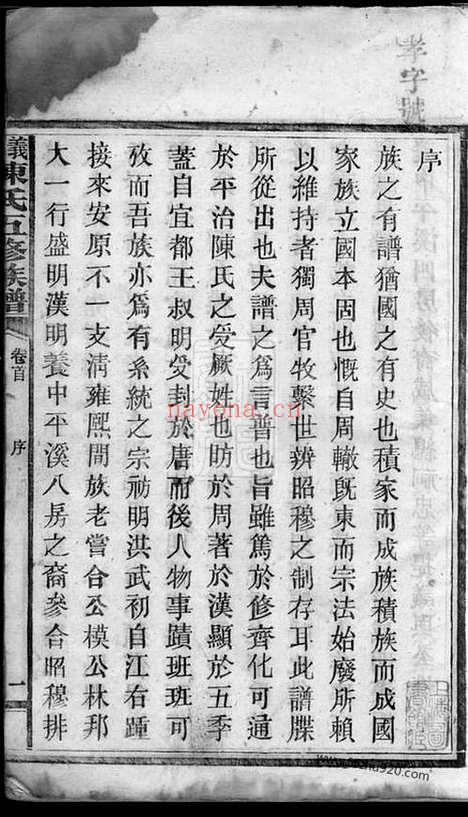 序
族之有譜猶國之有史也積家而成族積族而成國
家族立國本固也慨自周轍旣東而宗法始廢所賴
以維持者獨周官牧繫世辨昭穆之制存耳此譜牒
所從出也夫譜之爲言普也旨雖篤於修齊化可通
於平治陳氏之受厥姓也昉於周著於漢顯於五季
蓋自宜都王叔明受封於唐而後人物事蹟班班可
攷而吾族亦爲有系統之宗祊明洪武初自江右踵
接來安原不一支淸雍熙間族老嘗合公模公林邦
大一行盛明漢明養中平溪八房之裔參合昭穆排
義陳氏五修族譜
卷首
序
一
孝字號
nayona.cn